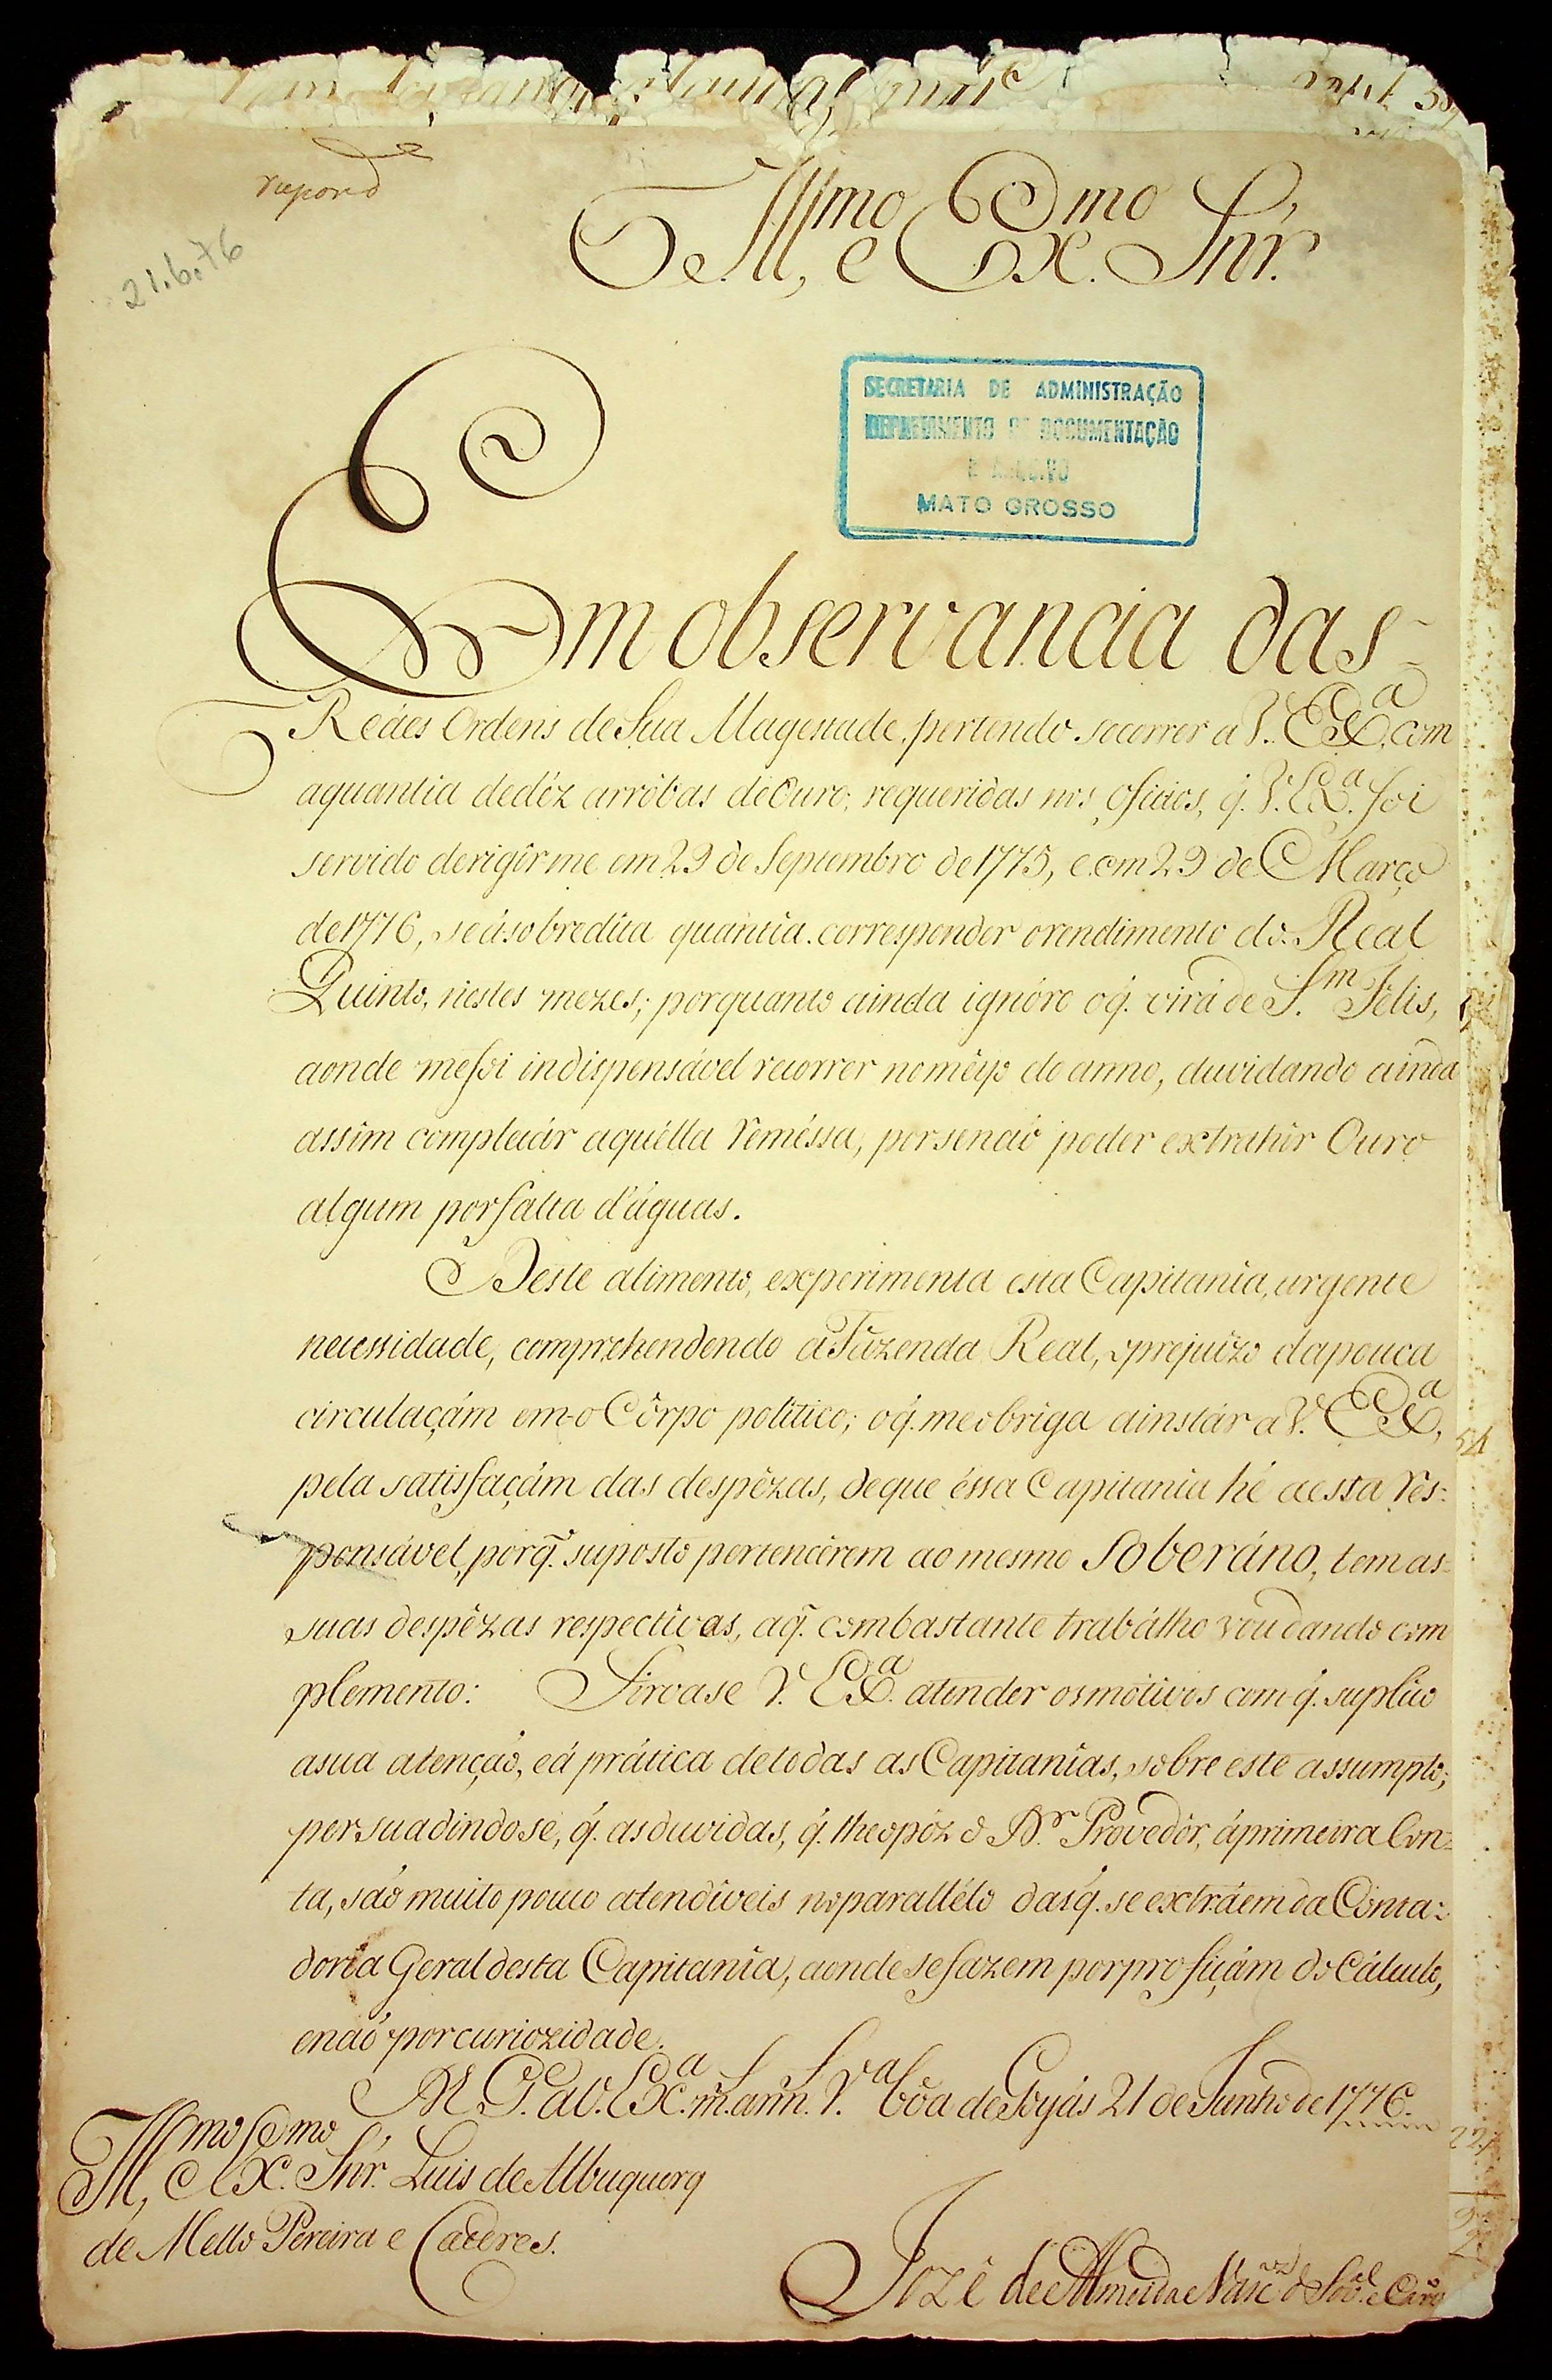 respond.de
21.6.76
Ill.mo e Ex.mo Snr.
SECRETARIA DE ADMINISTRAÇÃO
DEPARTAMENTO DE DOCUMENTAÇÃO
E ARQUIVO
MATO GROSSO
Em observancia das
Reáes Ordens de Sua Magestade, pertendo socorrer a V. Ex.a, com
aquantia dedêz arrôbas de Ouro, requeridas nos Oficios, q. V. Ex.a foi
servido derigîrme em 29 de Septembro de 1775, e em 29 de Março
de 1776, se ásobredita quantia corresponder orendimento do Real
Quinto, nestes mezes; porquanto ainda ignóro oq. virá de S.m Felis,
aonde mefoi indispensável recorrer nomêyo do anno, duvidando ainda
assim completár aquélla reméssa, porsenaõ poder extrahîr Ouro
algum porfalta d'águas.
Deste alimento, experimenta esta Capitanîa, urgente
necessidade, comprehendendo áFazenda Real, oprejuîzo dapouca
circulaçám em o Côrpo politico; oq. meobriga ainstár a V. Ex.a,
pela satisfaçám das despêzas, deque éssa Capitania hé aesta res:
ponsável, porq. suposto pertencêrem ao mesmo Soberáno, tem as
suas despêzas respectivas, aq. combastante trabálho vou dando com
plemento: Sirvase V. Ex.a atender osmótivos com q. suplico
asua atençaõ, eá prática detodas as Capitanîas, sobre este assumpto;
persuadindose, q. asduvidas, q. lheopôz o D.r Provedôr, áprimeira Con:
ta, saõ muito pouco atendîveis noparallélo dasq. se extráem da Conta:
dorîa Geral desta Capitanîa, aonde sefazem porprofiçám do Cálculo,
enaõ porcuriozidade.
D.s G.de a V. Ex.a m.s ann.s V.a bôa de Goyás 21 de Junho de 1776.
Ill.mo e Ex.mo Snr. Luis de Albuquerq
de Mello Pereira e Caceres.
Jozé de Almeida e Vasc.os de Sov.al e Carv.o